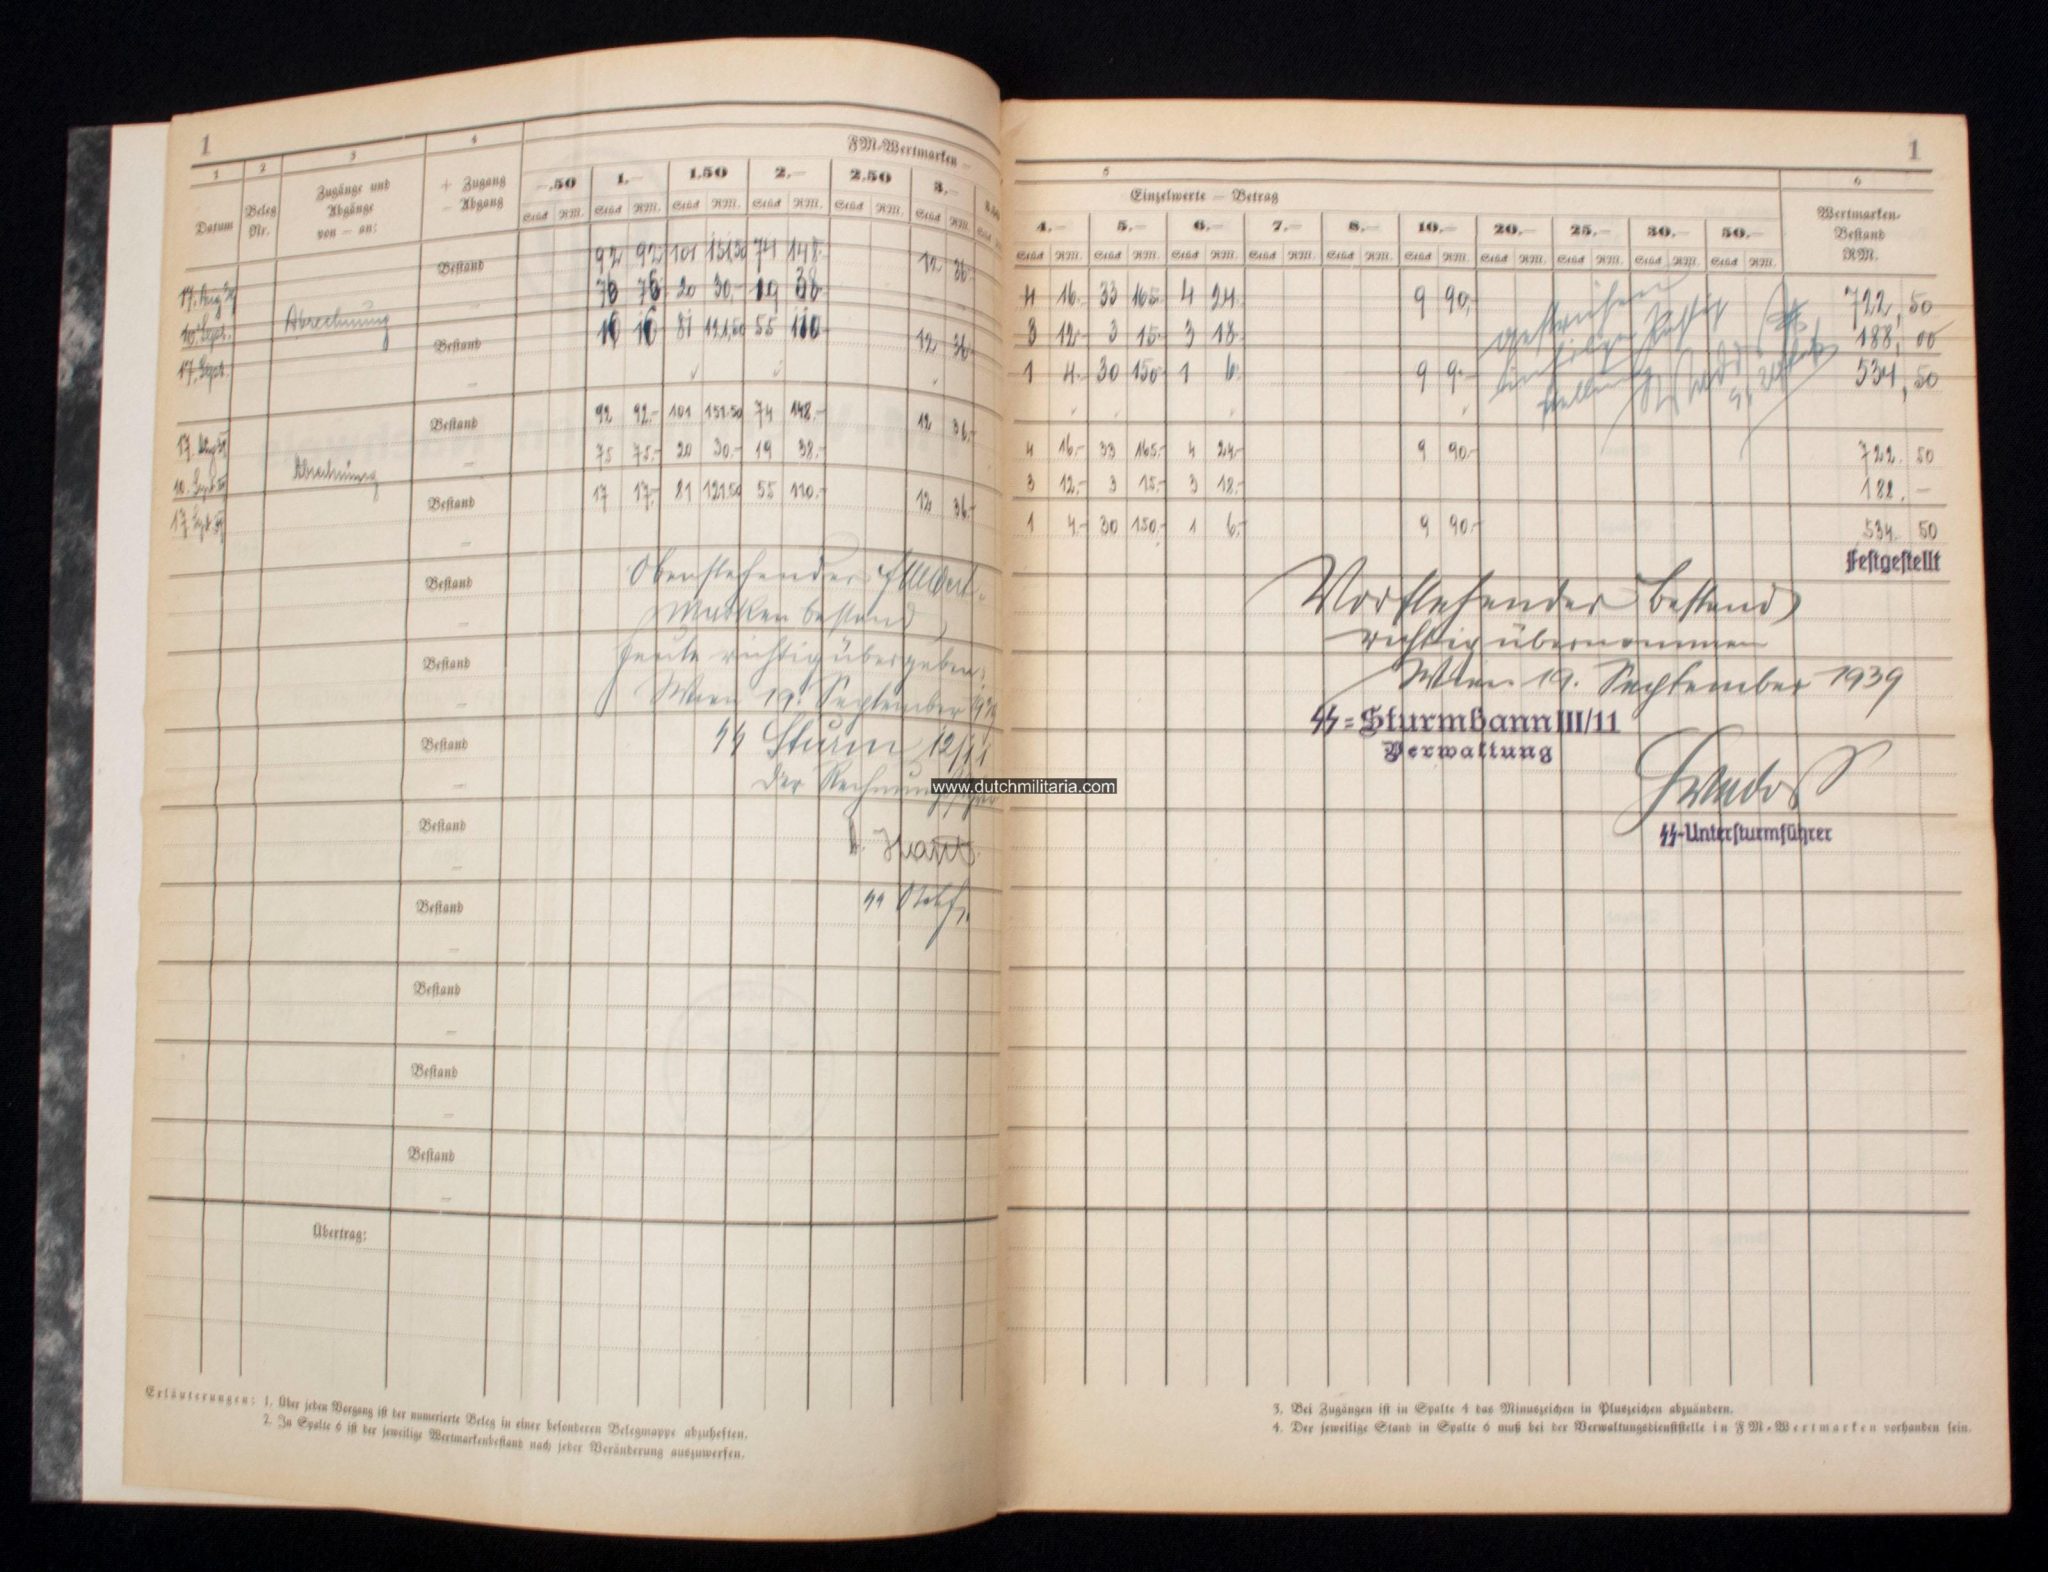 1
1 2 3 4
FM-Wertmarken —
Datum Beleg Nr. Zugänge und Abgänge von — an: + Zugang − Abgang
—.50 1.— 1.50 2.— 2.50 3.—
Stück RM. Stück RM. Stück RM. Stück RM. Stück RM. Stück RM.
Bestand 92 92 101 151.50 74 148.- 12 36.-
17. Aug. 39
20 30.- 19 38
10. Sept. Abrechnung
Bestand 16 16 81 121.50 55 110 12 36.-
17. Sept.
Bestand 92 92.- 101 151.50 74 148.- 12 36.-
17. Aug 39
75 75.- 20 30.- 19 38.-
10. Sept 39 Abrechnung
Bestand 17 17.- 81 121.50 55 110.- 12 36.-
17 Sept 39
Bestand
Obenstehender FM Wert-
Marken bestand
heute richtig übergeben:
Bestand
Wien 19. September 1939
Bestand
SS Sturm 12/11
Der
Bestand
Bestand
Bestand
Bestand
Bestand
Übertrag:
Erläuterungen: 1. Über jeden Vorgang ist der numerierte Beleg in einer besonderen Belegmappe abzuheften.
2. In Spalte 6 ist der jeweilige Wertmarkenbestand nach jeder Veränderung auszuwerfen.
www.dutchmilitaria.com
1
5 6
Einzelwerte — Betrag
Wertmarken-Bestand RM.
4.— 5.— 6.— 7.— 8.— 10.— 20.— 25.— 30.— 50.—
Stück RM. Stück RM. Stück RM. Stück RM. Stück RM. Stück RM. Stück RM. Stück RM. Stück RM. Stück RM.
4 16.- 33 165.- 4 24.- 9 90.- 722,50
3 12.- 3 15.- 3 18.- 188,00
1 4.- 30 150.- 1 6. 9 9.- 534,50
gestrichen
4 16.- 33 165.- 4 24.- 9 90.- 722.50
3 12.- 3 15.- 3 18.- 188.-
1 4.- 30 150.- 1 6.- 9 90.- 534.50
Festgestellt
Vorstehender Bestand
richtig übernommen
Wien 19. September 1939
SS=Sturmbann III/11
Verwaltung
SS-Untersturmführer
3. Bei Zugängen ist in Spalte 4 das Minuszeichen in Pluszeichen abzuändern.
4. Der jeweilige Stand in Spalte 6 muß bei der Verwaltungsdienststelle in FM-Wertmarken vorhanden sein.